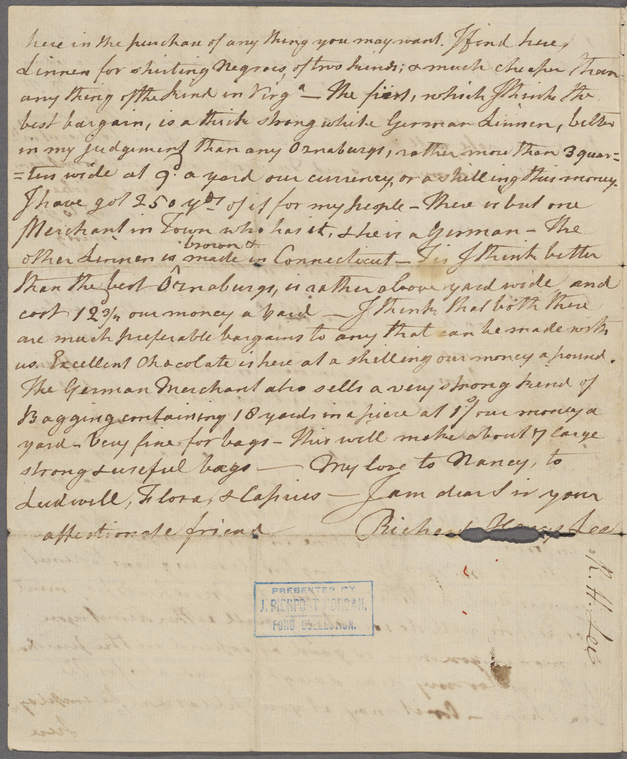 here in the purchase of any thing you may want. I find here,
Linnen for shirting Negroes, of two kinds; & much cheaper than
any thing of the kind in Virgª — The first, which I think the
best bargain, is a thick strong white German Linnen, better
in my judgement than any Oznaburgs, rather more than 3 quar-
=ters wide at 9d. a yard our currency, or a shelling this money.
I have got 250 yds of it for my people – There is but one
Merchant in Town who has it, & he is a German – The
other Linnen is brown & made in Connecticut – Tis I think better
than the best Oznaburgs, is rather above yard wide and
cost 12¾ our money a yard — I think that both these
are much preferable bargains to any that can be made with
us. Excellent Chocolate is here at a shelling our money a pound.
The German Merchant also sells a very strong kind of
Bagging containing 18 yards in a piece at our money a
yard – Very fine for bags – This will make about 7 large
strong & useful bags — My love to Nancy, to
Ludwell, Flora, & Cassius — I am dear Sir your
affectionate friend Richard Henry Lee
R. H. Lee
PRESENTED BY
J. PIERPONT MORGAN.
FORD COLLECTION.